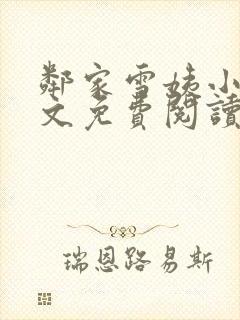 鄰家雪姨小
文免費閱讀
瑞恩路易斯